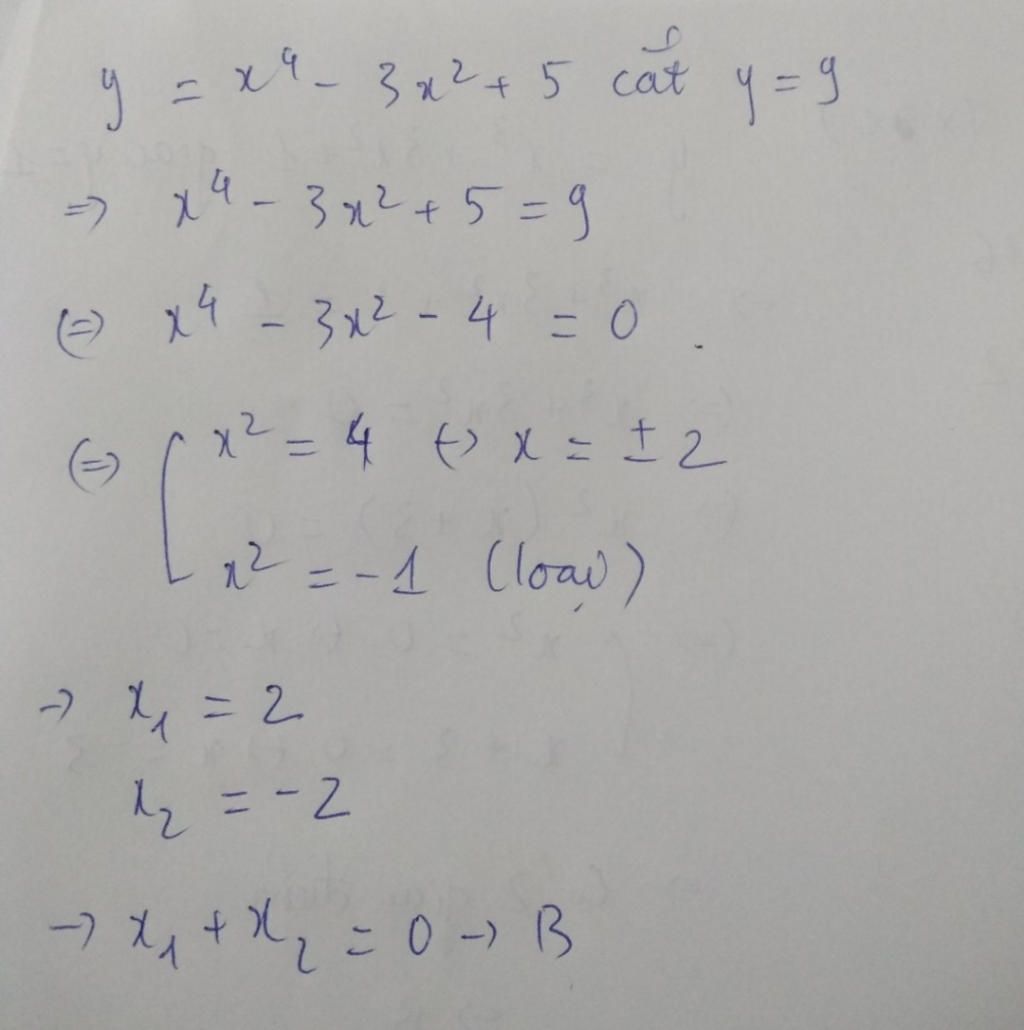 y = x⁴ - 3x² + 5 cắt y = 9
=> x⁴ - 3x² + 5 = 9
(=) x⁴ - 3x² - 4 = 0
(=) [ x² = 4 (-) x = ± 2
x² = -1 (loại)
-> x₁ = 2
x₂ = -2
-> x₁ + x₂ = 0 -> B